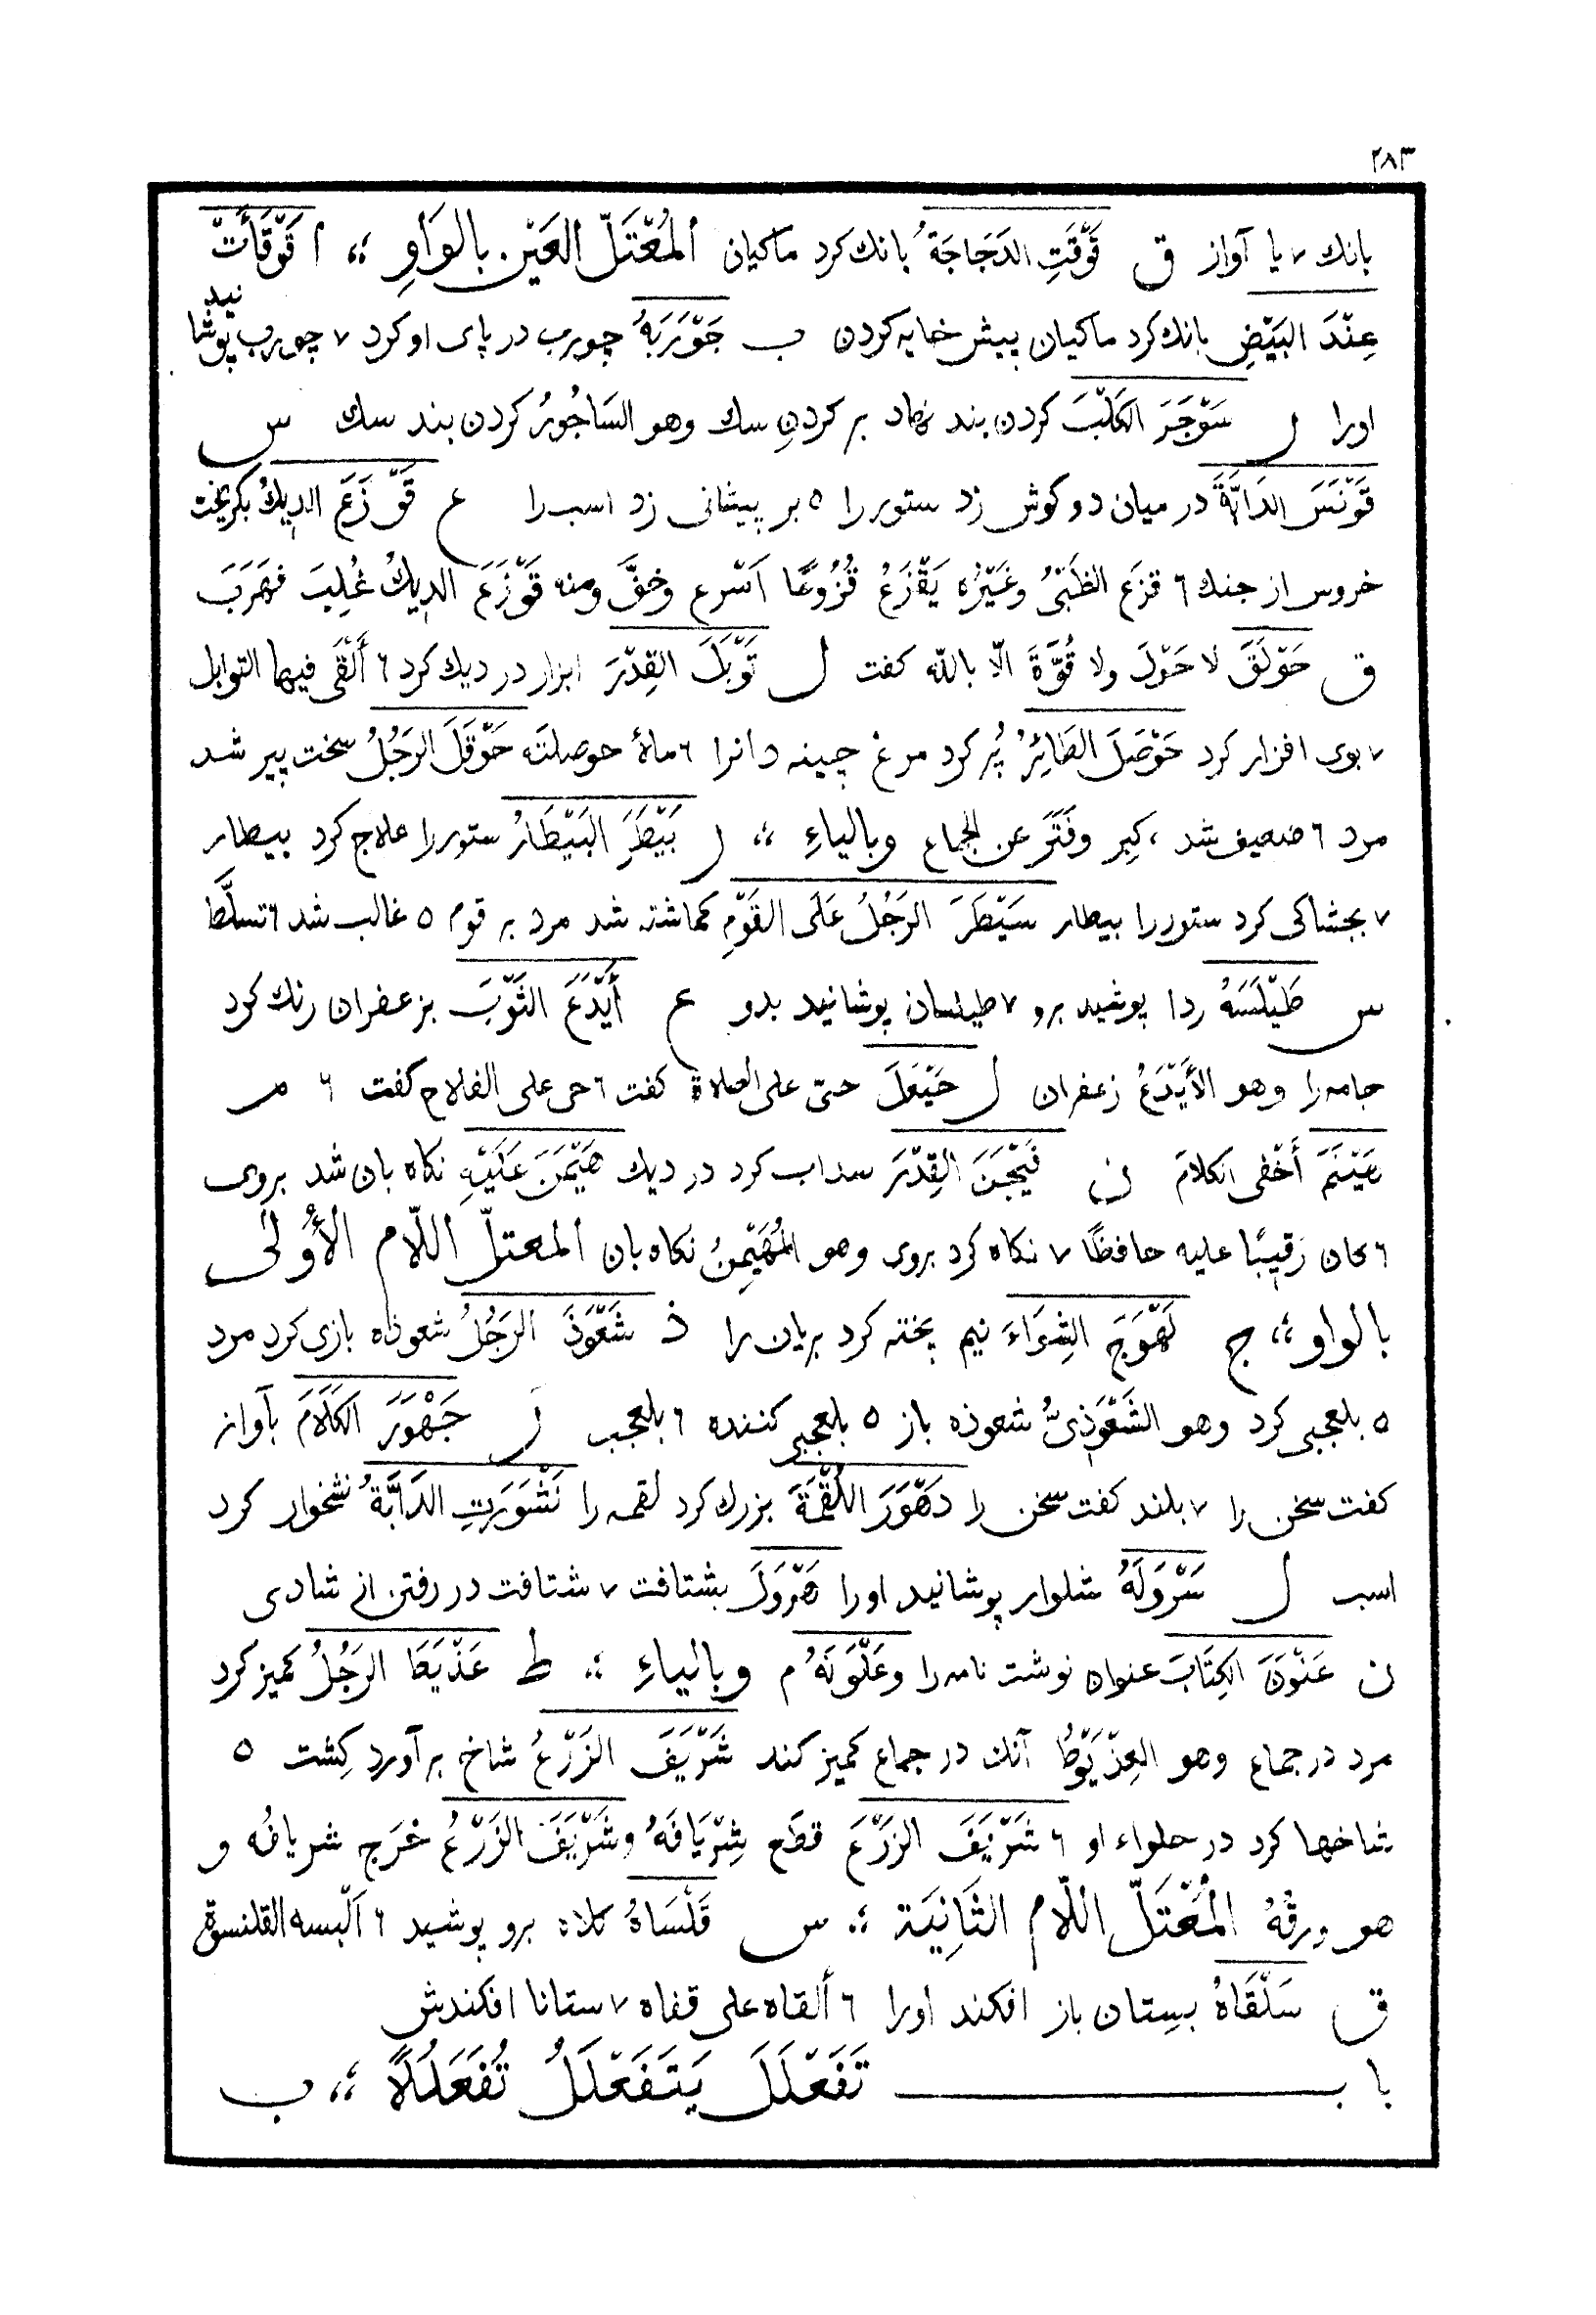 ٢٨٣
بانك ٧ يا آواز ق قَوَّقَتِ الدَجَاجَةُ بانك كرد ماكيان المُعْتَلّ العَيْن بالوَاوِ ؛؛ ا قَوْقَأَتْ
عِنْدَ البَيْضِ بانك كرد ماكيان پيش خايه كردن ب جَوْرَبَهُ چورب در پاى او كرد ٧ چورب پوشا نيد
اورا ر سَوْجَرَ الكَلْبَ كردن بند نهاد بر كردنِ سك وهو السَاجُورُ كردن بند سك س
قَوْنَسَ الدَابَّةَ در ميان دو كوش زد ستور را ٥ بر پيشانى زد اسب را ع قَوْزَعَ الديكُ بكريخت
خروس از جنك ٦ قزَع الظَبْىُ وغَيْرُه يَقْزَعُ قُزُوعًا اَسْرع وخفَّ ومنه قَوْزَعَ الديكُ غُلِبَ فهَرَبَ
ق حَوْلَقَ لا حَوْلَ ولا قُوَّةَ الّا بالله كفت ل تَوْبَلَ القِدْرَ ابزار در ديك كرد ٦ أَلْقَى فيها التوابل
٧ بوى افزار كرد حَوْصَلَ الطَائِرُ پُر كرد مرغ چينه دانرا ٦ ملأ حوصلتَه حَوْقَلَ الرَجُلُ سخت پير شد
مرد ٦ ضعيف شد ، كبِر وفَتَرَ عن الجماع وبالياءِ ؛؛ ر بَيْطَرَ البَيْطَارُ ستور را علاج كرد بيطار
٧ بجشاكى كرد ستور را بيطار سَيْطَرَ الرَجُلُ عَلَى القَوْمِ كماشته شد مرد بر قوم ٥ غالب شد ٦ تسلَّط
س طَيْلَسَهُ ردا پوشيد برو ٧ طيلسان پوشانيد بدو ع أَيْدَعَ الثَوْبَ بزعفران رنك كرد
جامه را وهو الأَيْدَعُ زعفران ل حَيْعَلَ حىّ على الصلاة كفت ٦ حى على الفلاح كفت ٦ م
هَيْنَمَ أَخْفى الكلامَ ن فَيْجَنَ القِدْرَ سداب كرد در ديك هَيْمَنَ عَلَيْهِ نكاه بان شد بروى
٦ كان رَقيبًا عليه حافظًا ٧ نكاه كرد بروى وهو المُهَيْمِنُ نكاه بان المعتلّ اللّام الأُولَى
بالواو ؛؛ ج لَهْوَجَ الشِوَاءَ نيم پخته كرد بريان را ذ شَعْوَذَ الرَجُلُ شعوذه بازى كرد مرد
٥ بلعجبى كرد وهو الشَعْوَذىُّ شعوذه باز ٥ بلعجبى كننده ٦ بلعجب ر جَهْوَرَ الكَلَامَ بآواز
كفت سخن را ٧ بلند كفت سخن را دَهْوَرَ اللُقْمَةَ بزرك كرد لقمه را نَشْوَرَتِ الدَابَّةُ نشخوار كرد
اسب ل سَرْوَلَهُ شلوار پوشانيد اورا هَرْوَلَ بشتافت ٧ شتافت در رفتن از شادى
ن عَنْوَنَ الكِتَابَ عنوان نوشت نامه را وعَلْوَنَهُ م وبالياءِ ؛؛ ط عَذْيَطَ الرَجُلُ كميز كرد
مرد در جماع وهو العِذْيَوْطُ آنك در جماع كميز كند شَرْيَفَ الزَرْعُ شاخ بر آورد كِشت ٥
شاخها كرد در حلواء او ٦ شَرْيَفَ الزَرْعَ قطَع شِرْيَافَهُ وشَرْيَفَ الزَرْعُ خرَج شريافُه و
هو ورقُهُ المُعْتَلّ اللّام الثَانِيَة ؛؛ س قَلْسَاهُ كلاه برو پوشيد ٦ اَلْبسه القلنسوة
ق سَلْقَاهُ بسِتان باز افكند اورا ٦ ألقاه على قفاه ٧ ستانا افكندش
باب تَفَعْلَلَ يَتَفَعْلَلُ تَفَعْلُلًا ؛؛ ب